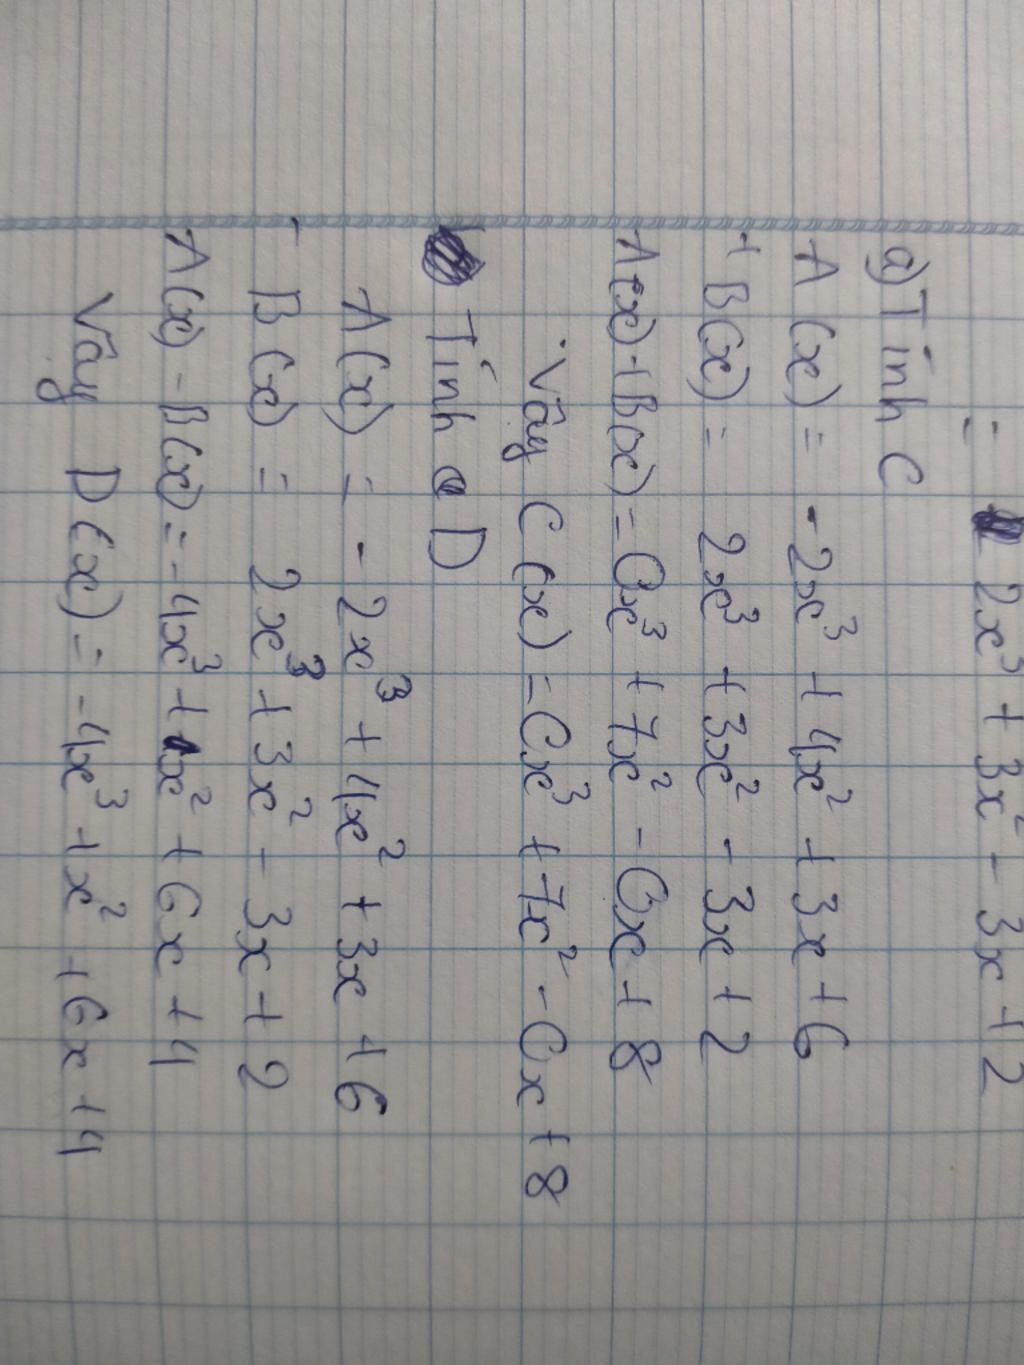 = 2x³ + 3x² - 3x + 2
a) Tính C
A(x) = -2x³ + 4x² + 3x + 6
+ B(x) = 2x³ + 3x² - 3x + 2
A(x) + B(x) = 0x³ + 7x² - 0x + 8
Vậy C(x) = 0x³ + 7x² - 0x + 8
Tính D
A(x) = -2x³ + 4x² + 3x + 6
- B(x) = 2x³ + 3x² - 3x + 2
A(x) - B(x) = -4x³ + x² + 6x + 4
Vậy D(x) = -4x³ + x² + 6x + 4